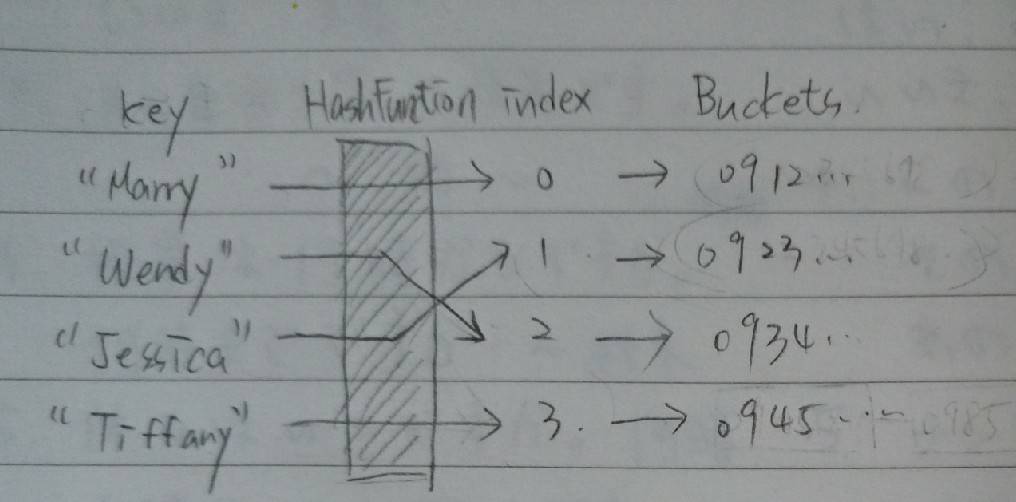 key HashFuntion index Buckets.
"Marry" → 0 → 0912...
"Wendy" 1 → 0923...
"Jessica" 2 → 0934...
"Tiffany" → 3. → 0945...